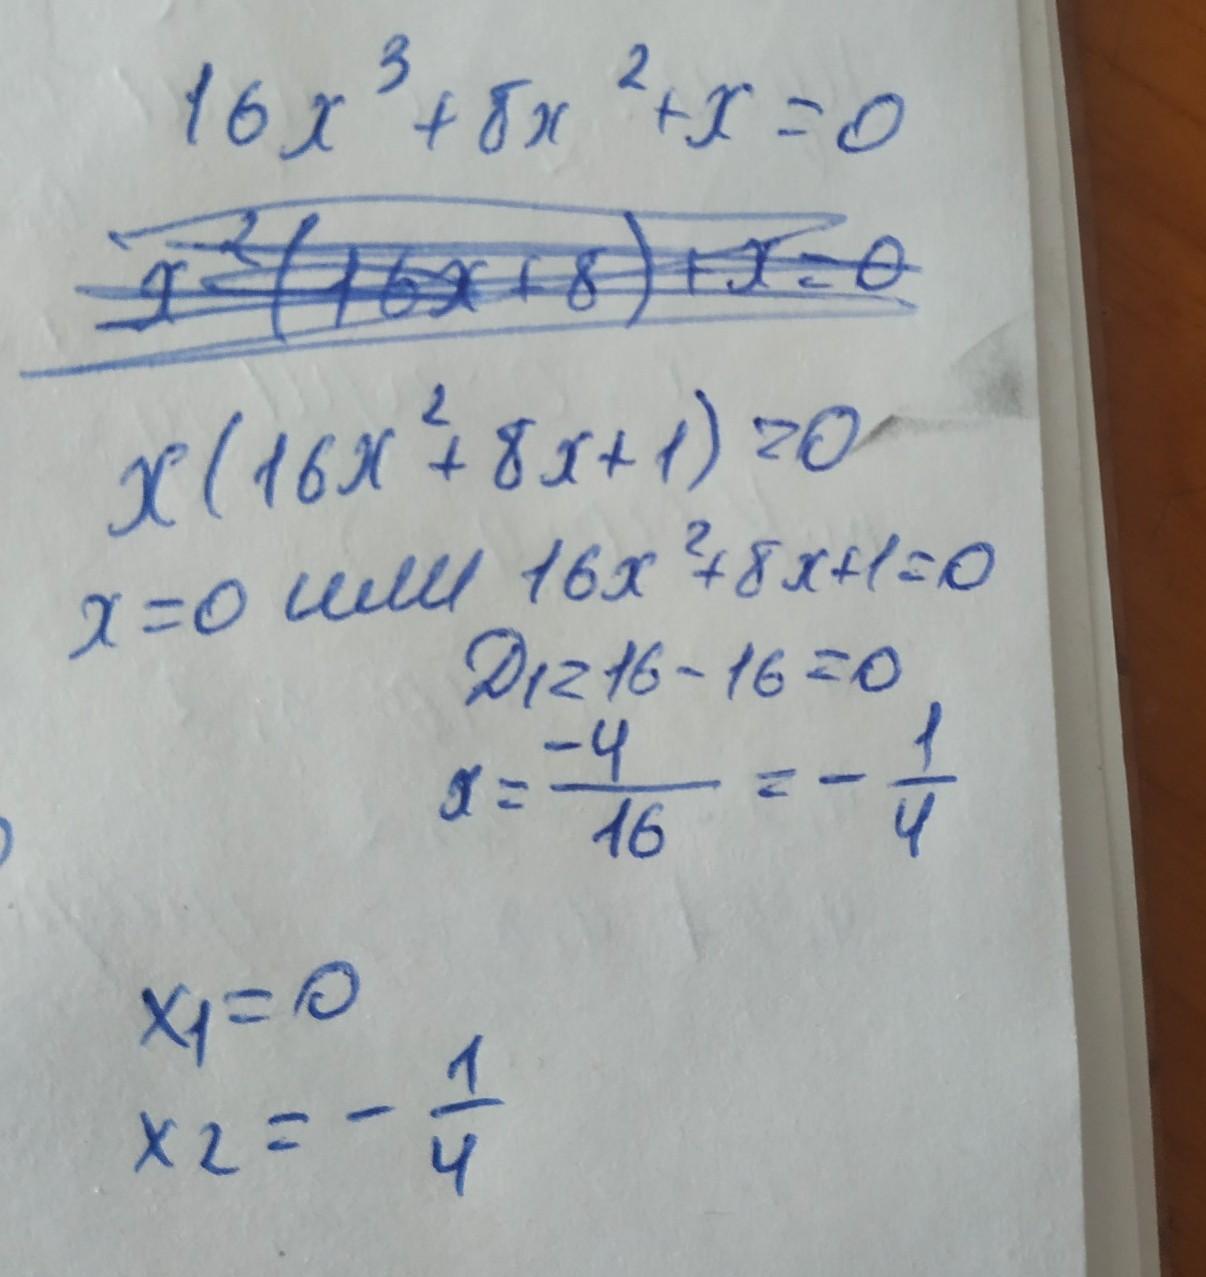 16x³+8x²+x=0
x²(16x+8)+x=0
x(16x²+8x+1)=0
x=0 или 16x²+8x+1=0
D₁=16-16=0
x=-4/16=-1/4
x₁=0
x₂=-1/4